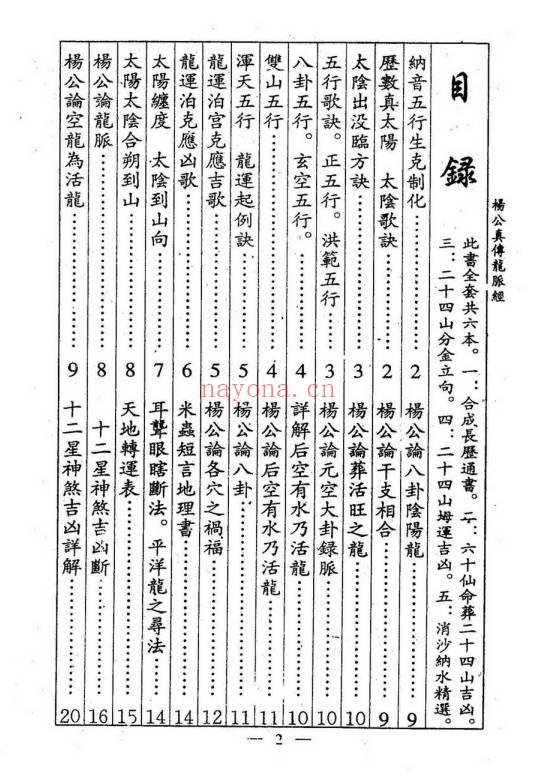 楊公真傳龍脈經
目錄
此書全套共六本。一:合成長歷通書。二:六十仙命葬二十四山吉凶。
三:二十四山分金立句。四:二十四山坶運吉凶。五:消沙納水精選。
納音五行生克制化……………2
歷數真太陽　太陰歌訣………2
太陰出没臨方訣……………3
五行歌訣。正五行。洪範五行…3
八卦五行。玄空五行。………4
雙山五行……………………4
渾天五行　龍運起例訣………5
龍運泊宫克應吉歌…………5
龍運泊克應凶歌……………6
太陽纏度　太陰到山向………7
太陽太陰合朔到山…………8
楊公論龍脈…………………8
楊公論空龍為活龍…………9
楊公論八卦陰陽龍…………9
楊公論干支相合……………9
楊公論葬活旺之龍…………10
楊公論元空大卦録脈………10
詳解后空有水乃活龍………10
楊公論后空有水乃活龍……11
楊公論八卦…………………11
楊公論各穴之禍福…………12
米蟲短言地理書……………14
耳聾眼瞎斷法。平洋龍之尋法…14
天地轉運表…………………15
十二星神煞吉凶斷…………16
十二星神煞吉凶詳解………20
— 2 —
nayona.cn